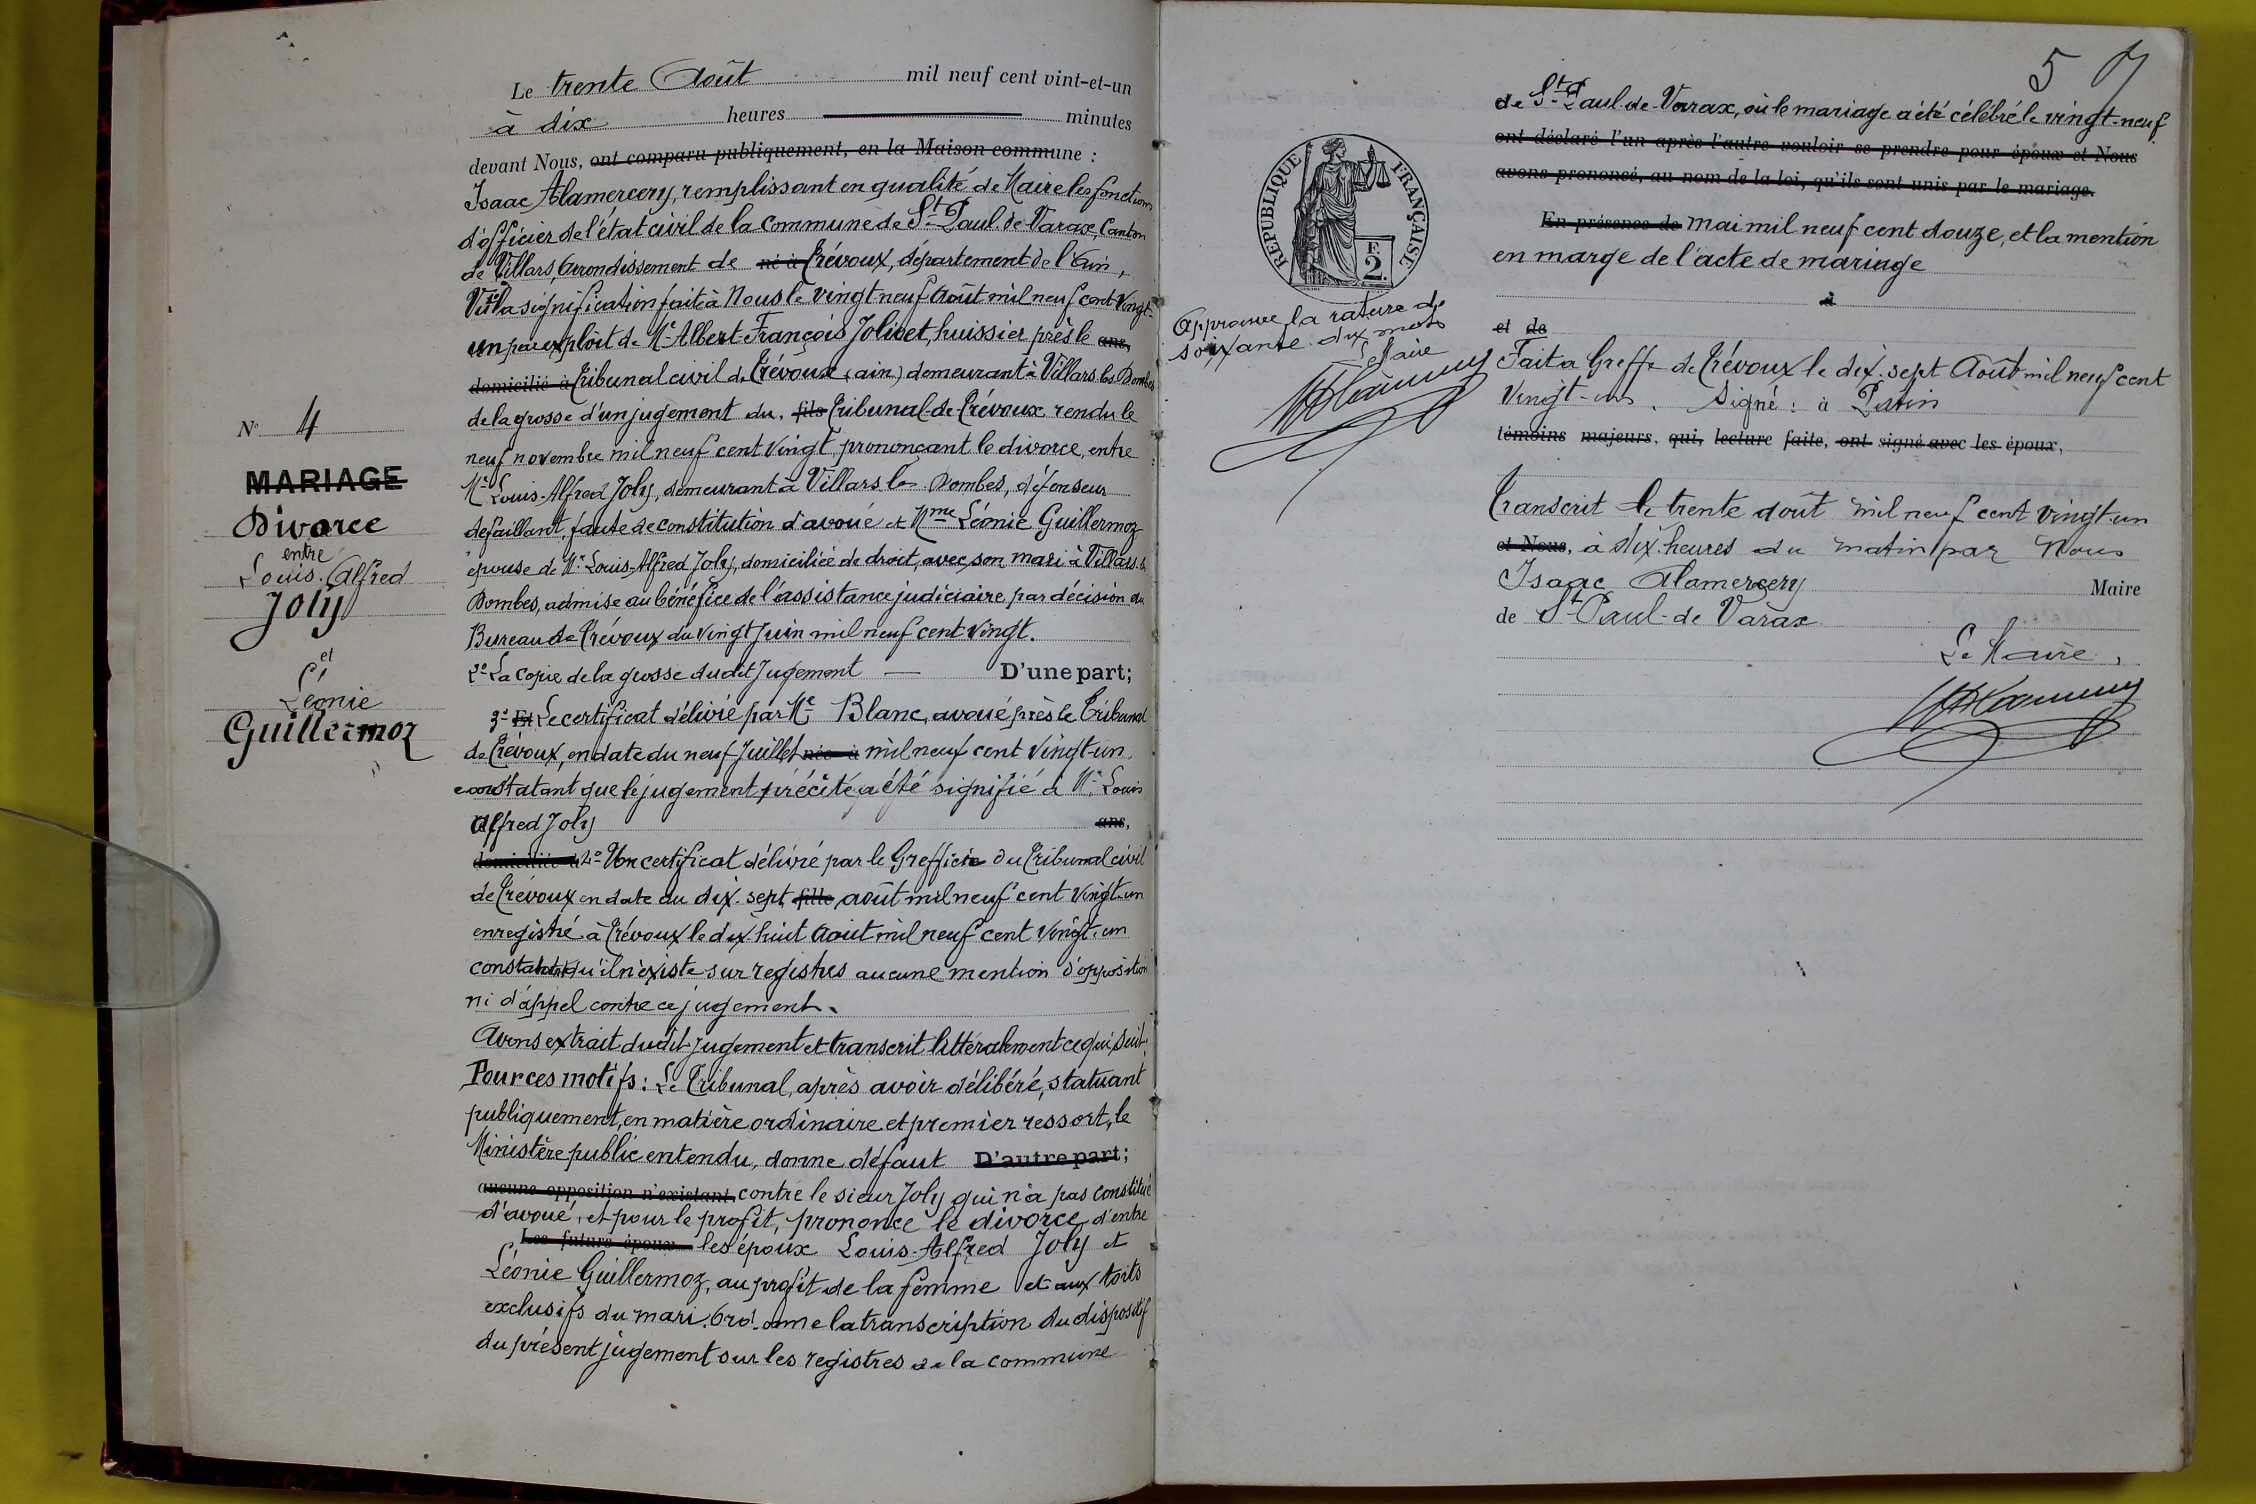 N° 4
MARIAGE
Divorce
entre
Louis-Alfred
Joly
et
Léonie
Guillermoz
Le trente Août mil neuf cent vint-et-un
à dix heures minutes
devant Nous, ont comparu publiquement, en la Maison commune :
Isaac Alamercery, remplissant en qualité de Maire les fonctions
d'officier de l'état civil de la commune de St Paul de Varax, Canton
de Villars, Arrondissement de né à Trévoux, département de l'Ain,
Vu 1° la signification faite à Nous le vingt neuf Août mil neuf cent vingt-
un par exploit de Me Albert-François Jolivet, huissier près le ans,
domicilié à Tribunal civil de Trévoux (ain) demeurant à Villars les Dombes
de la grosse d'un jugement du fils Tribunal de Trévoux rendu le
neuf novembre mil neuf cent vingt, prononçant le divorce, entre
Mr Louis-Alfred Joly, demeurant à Villars les Dombes, défenseur
défaillant, faute de constitution d'avoué et Mme Léonie Guillermoz
épouse de Mr Louis-Alfred Joly, domiciliée de droit, avec son mari à Villars-les
Dombes, admise au bénéfice de l'assistance judiciaire par décision du
Bureau de Trévoux du vingt Juin mil neuf cent vingt.
2° La copie de la grosse dudit Jugement D'une part;
3° Et Le certificat délivré par Me Blanc, avoué près le Tribunal
de Trévoux, en date du neuf Juillet née à mil neuf cent vingt-un
constatant que le jugement précité a été signifié à Mr Louis
Alfred Joly ans,
domiciliée à 4° Un certificat délivré par le Greffier du Tribunal civil
de Trévoux en date du dix-sept fille août mil neuf cent vingt-un
enregistré à Trévoux le dix-huit Aout mil neuf cent vingt-un
constatant qu'il n'existe sur registres aucune mention d'opposition
ni d'appel contre ce jugement.
Avons extrait dudit Jugement et transcrit littéralement ce qui suit:
Pour ces motifs : Le Tribunal, après avoir délibéré, statuant
publiquement, en matière ordinaire et premier ressort, le
Ministère public entendu, donne défaut D'autre part;
aucune opposition n'existant, contre le sieur Joly qui n'a pas constitué
d'avoué, et pour le profit, prononce le divorce d'entre
Les futurs époux les époux Louis-Alfred Joly et
Léonie Guillermoz, au profit de la femme et aux torts
exclusifs du mari. Ordonne la transcription du dispositif
du présent jugement sur les registres de la commune
5
REPUBLIQUE FRANÇAISE
F.
2.
Approuve la rature de
soixante-dix mots
Le Maire
de St Paul-de-Varax, où le mariage a été célébré le vingt-neuf
ont déclaré l'un après l'autre vouloir se prendre pour époux et Nous
avons prononcé, au nom de la loi, qu'ils sont unis par le mariage.
En présence de mai mil neuf cent douze, et la mention
en marge de l'acte de mariage
à
et de
Fait a Greffe de Trévoux le dix-sept Août mil neuf cent
vingt-un. Signé : à
témoins majeurs, qui, lecture faite, ont signé avec les époux,
Transcrit le trente août mil neuf cent vingt-un
et Nous, à dix heures du matin par Nous
Isaac Alamercery Maire
de St Paul-de Varax
Le Maire,